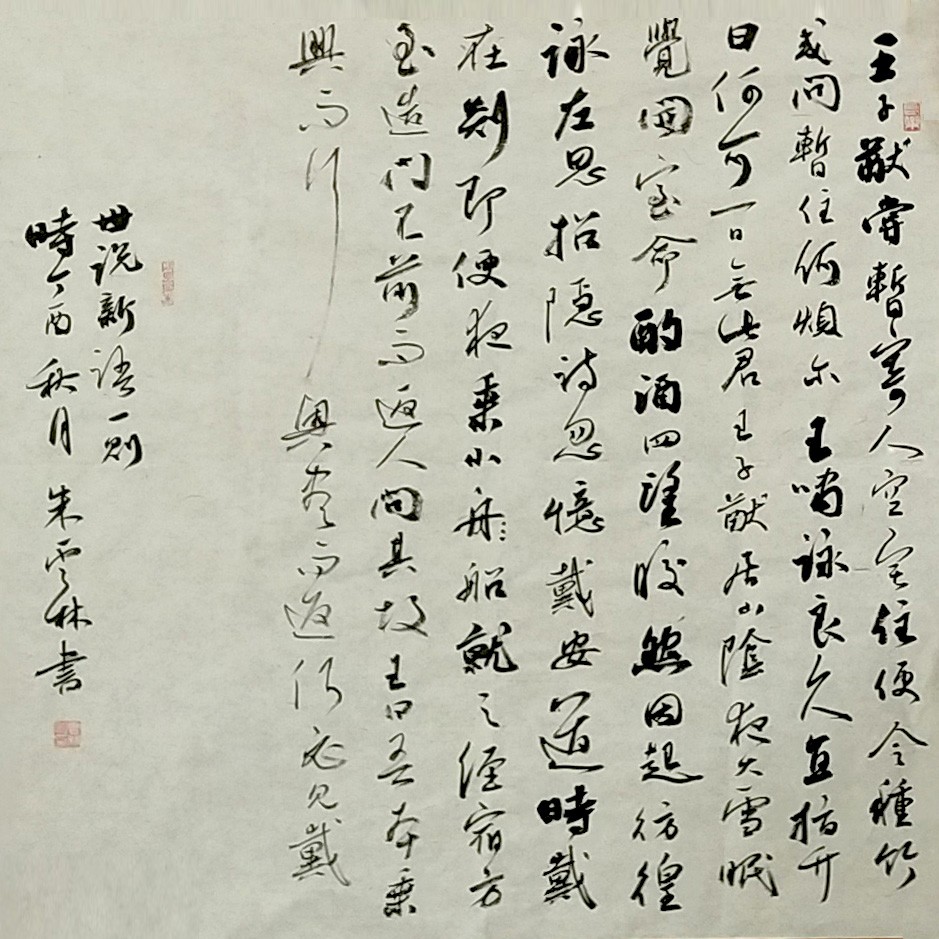 王子猷嘗暫寄人空宅住便令種竹
或問暫住何煩尔王嘯詠良久直指竹
曰何可一日無此君王子猷居山陰夜大雪眠
覺開室命酌酒四望皎然因起彷徨
詠左思招隱詩忽憶戴安道時戴
在剡即便夜乘小舟船就之經宿方
至造門不前而返人問其故王曰吾本乘
興而行 興盡而返何必見戴
世説新語一則
時丁酉秋月 朱雲林書